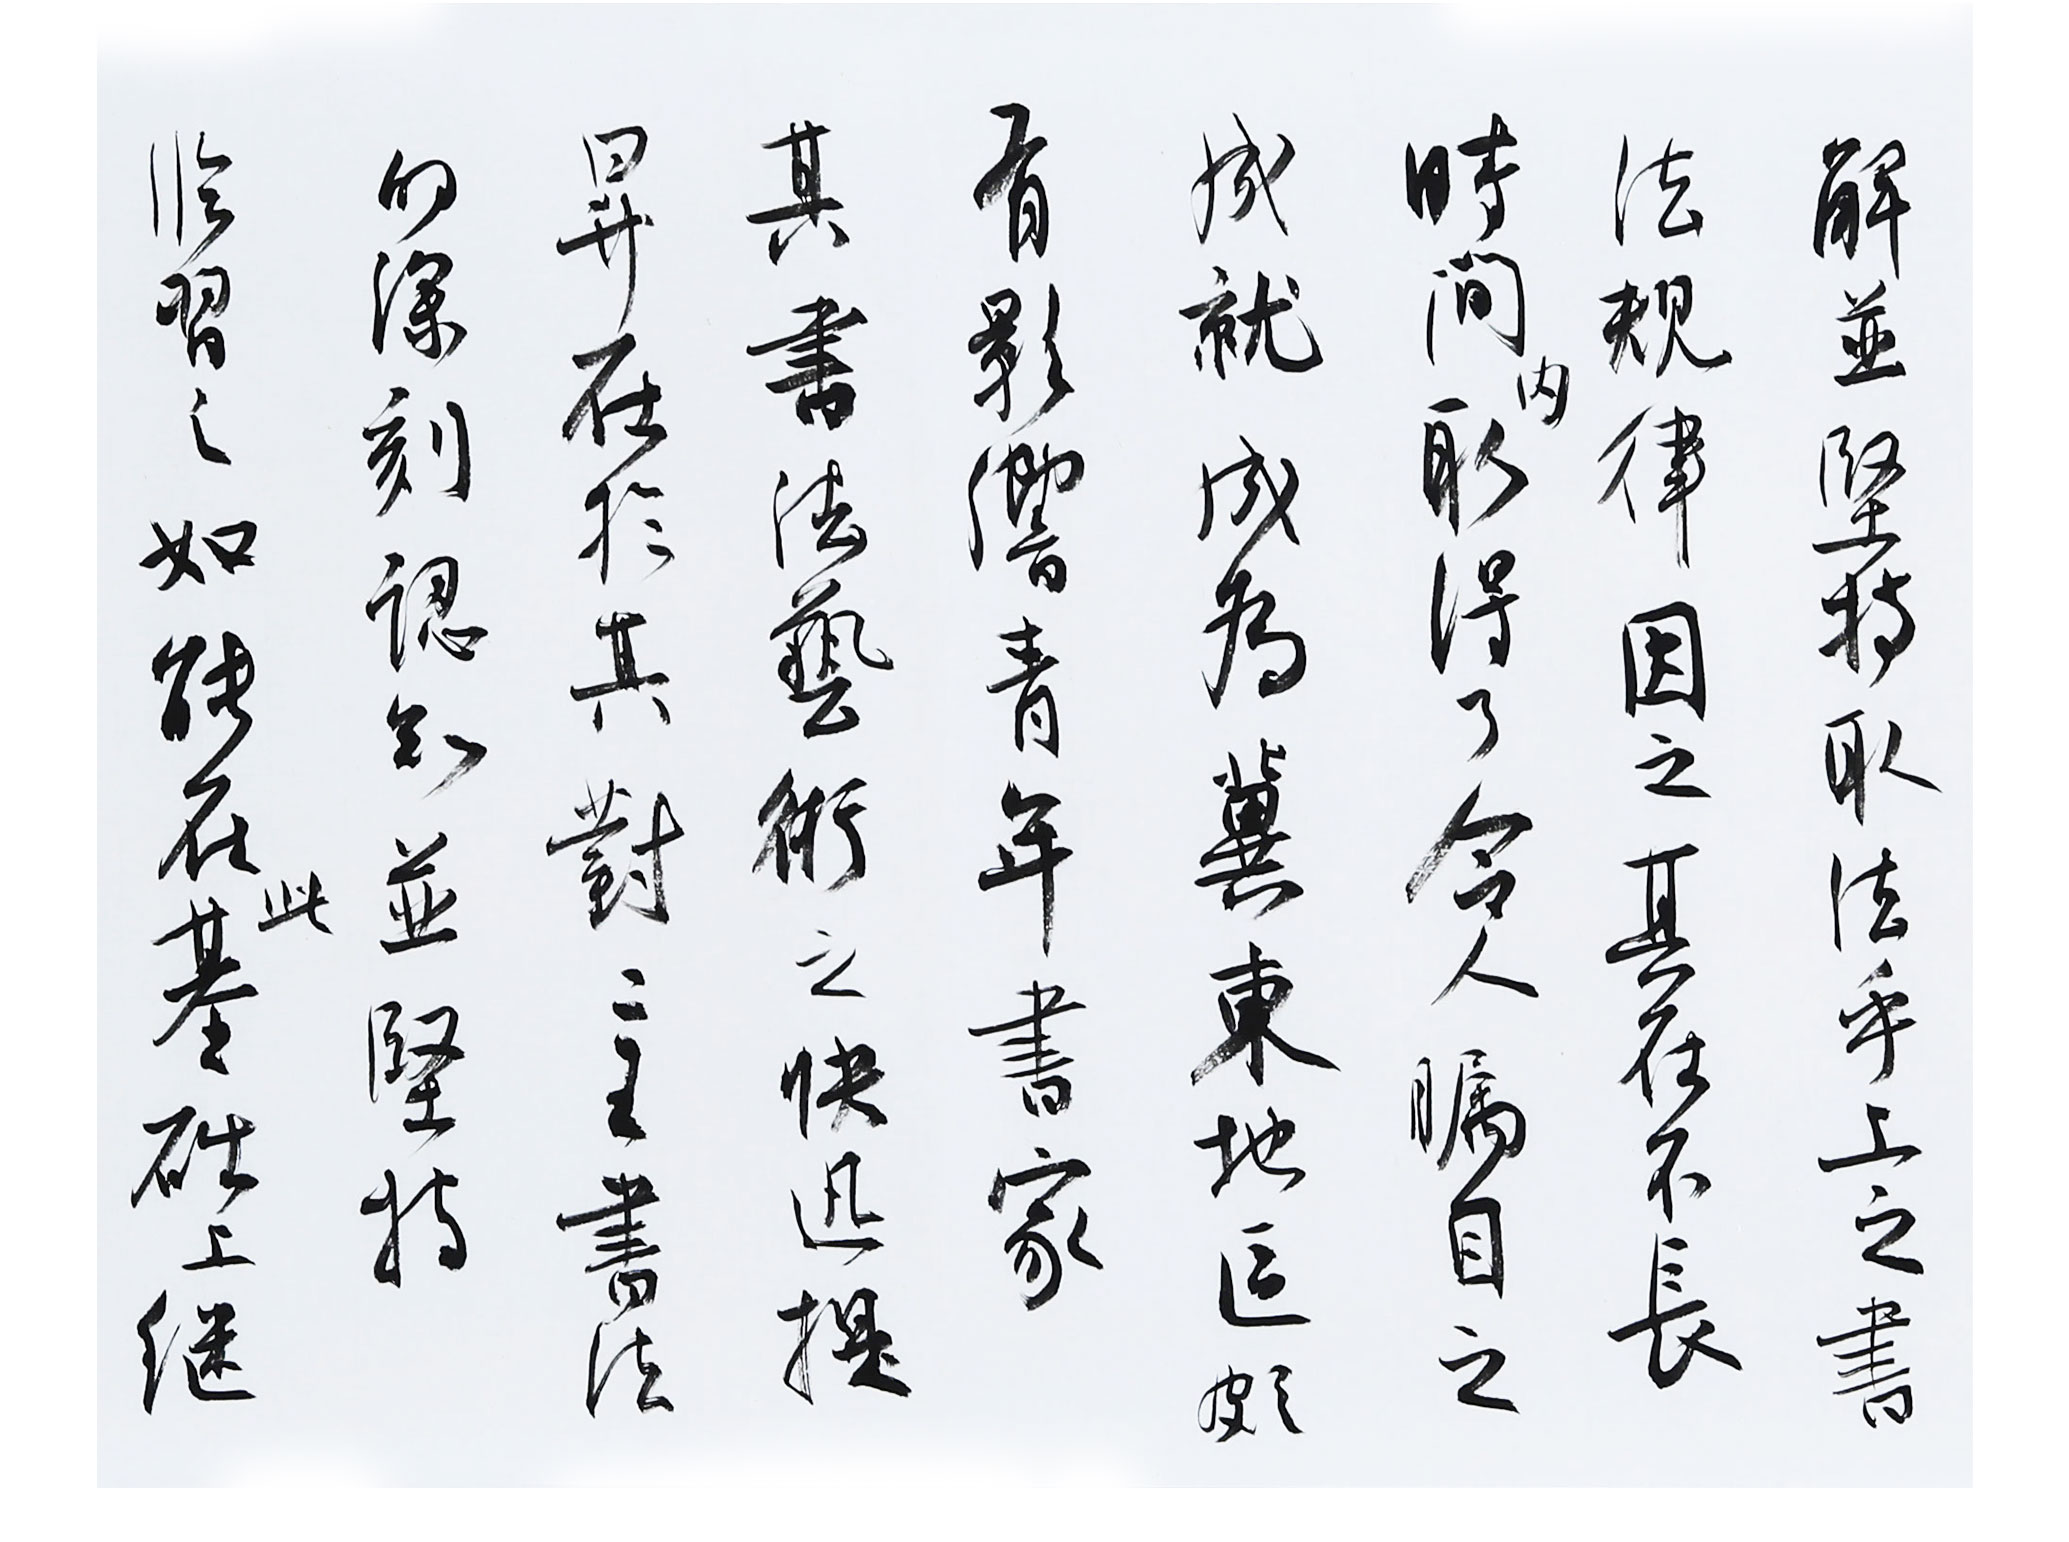 解並堅持取法乎上之書
法規律因之其在不長
時間内取得了令人瞩目之
成就成為冀東地區頗
有影響青年書家
其書法藝術之快迅提
昇在於其對二王書法
的深刻認知並堅持
临習之如能在此基础上继